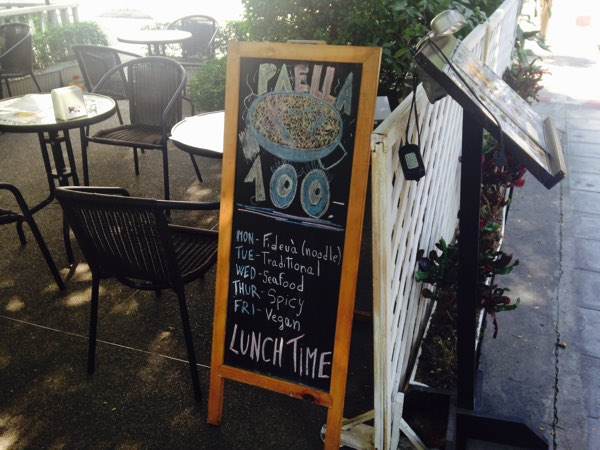 PAELLA
100
MON- Fideuà (noodle)
TUE- Traditional
WED- Seafood
THUR- Spicy
FRI- Vegan
LUNCH TIME